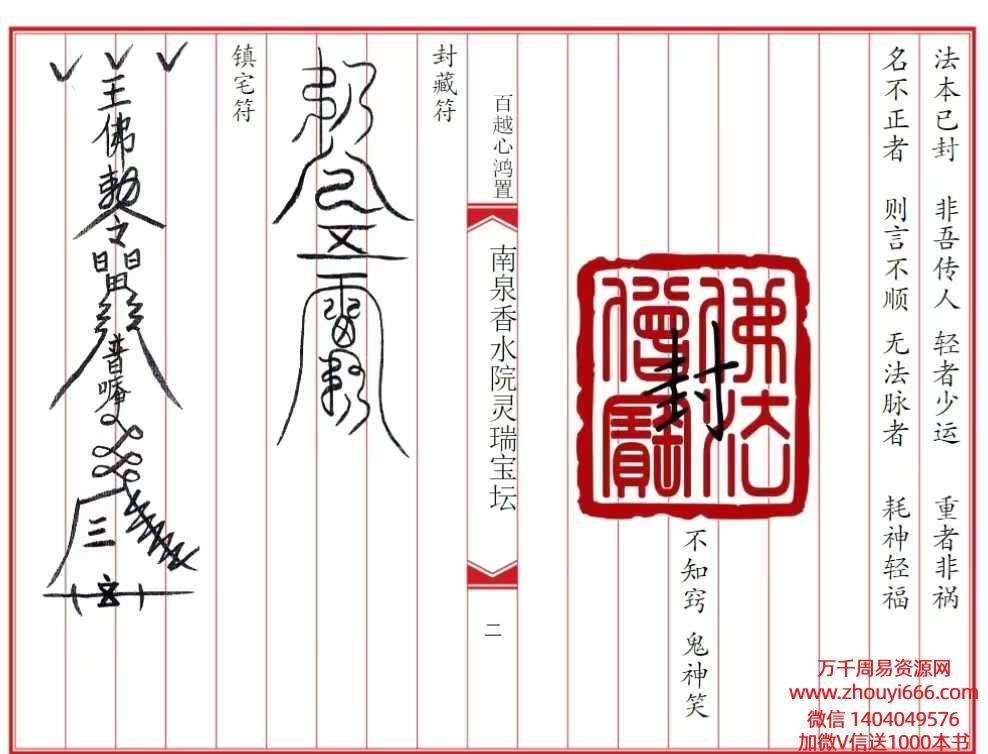 法本已封 非吾传人 轻者少运 重者非祸
名不正者 则言不顺 无法脉者 耗神轻福
佛法僧寳
封
不知窍 鬼神笑
百越心鸿置
南泉香水院灵瑞宝坛
二
封藏符
镇宅符
王佛勅令
普唵
三
万千周易资源网
www.zhouyi666.com
微信 1404049576
加微V信送1000本书